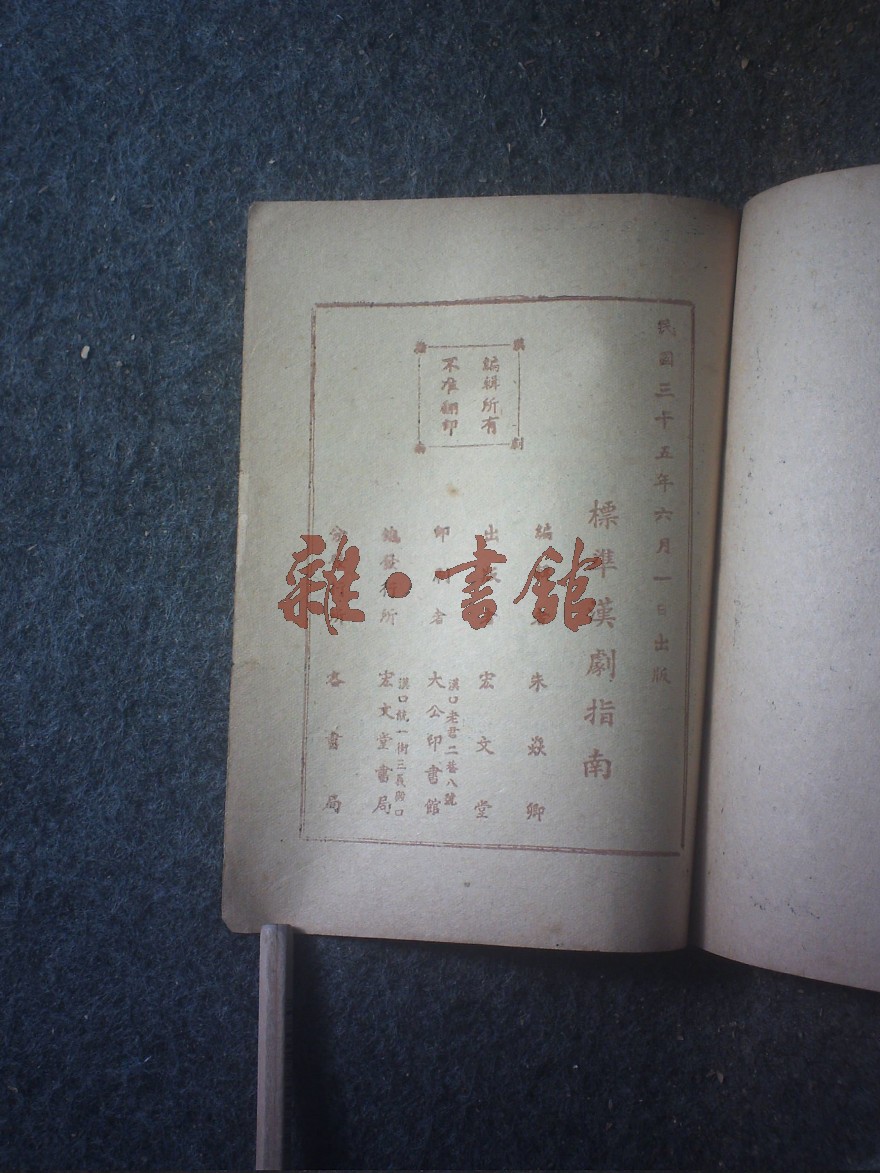 民國三十五年六月一日出版
標準漢劇指南
編 朱焱卿
出 宏文堂
印 者 大公印書館
漢口老君二巷八號
總發行所 宏文堂書局
漢口統一街三義殿口
各書局
編輯所有
不准翻印
漢劇
雜·書館